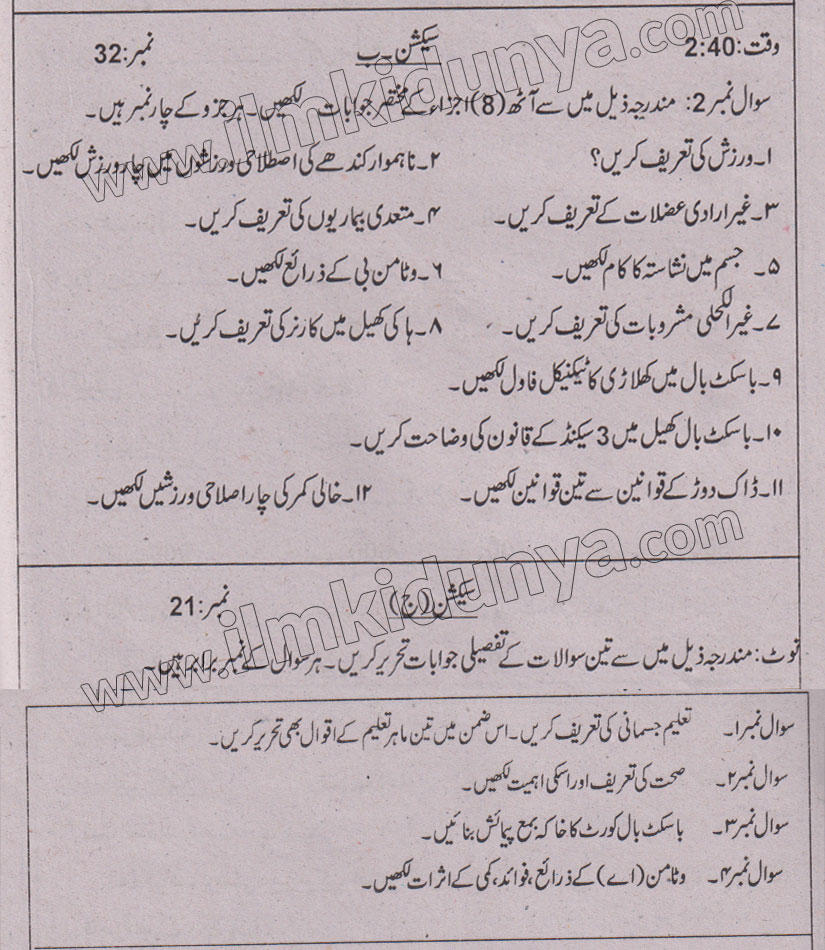 وقت:2:40 سیکشن۔ب نمبر:32
سوال نمبر2: مندرجہ ذیل میں سے آٹھ (8) اجزاء کے مختصر جوابات لکھیں۔ ہر جزو کے چار نمبر ہیں۔
۱۔ورزش کی تعریف کریں؟ ۲۔ناہموار کندھے کی اصطلاحی ورزشوں میں چار ورزش لکھیں۔
۳۔غیر ارادی عضلات کے تعریف کریں۔ ۴۔متعدی بیماریوں کی تعریف کریں۔
۵۔ جسم میں نشاستہ کا کام لکھیں۔ ۶۔وٹامن بی کے ذرائع لکھیں۔
۷۔غیر الکحلی مشروبات کی تعریف کریں۔ ۸۔ہاکی کھیل میں کارنر کی تعریف کریں۔
۹۔باسکٹ بال میں کھلاڑی کا ٹیکنیکل فاول لکھیں۔
۱۰۔باسکٹ بال کھیل میں 3 سیکنڈ کے قانون کی وضاحت کریں۔
۱۱۔ڈاک دوڑ کے قوانین سے تین قوانین لکھیں۔ ۱۲۔خالی کمر کی چار اصلاحی ورزشیں لکھیں۔
سیکشن (ج) نمبر:21
نوٹ: مندرجہ ذیل میں سے تین سوالات کے تفصیلی جوابات تحریر کریں۔ ہر سوال کے نمبر برابر ہیں۔
سوال نمبر۱۔ تعلیم جسمانی کی تعریف کریں۔ اس ضمن میں تین ماہر تعلیم کے اقوال بھی تحریر کریں۔
سوال نمبر۲۔ صحت کی تعریف اور اسکی اہمیت لکھیں۔
سوال نمبر۳۔ باسکٹ بال کورٹ کا خاکہ بمع پیمائش بنائیں۔
سوال نمبر۴۔ وٹامن (اے) کے ذرائع، فوائد، کمی کے اثرات لکھیں۔
www.ilmkidunya.com
www.ilmkidunya.com